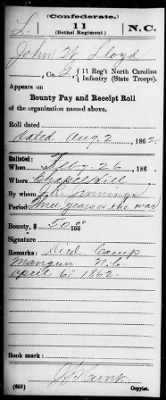 (Confederate.)
L 11 N.C.
(Bethel Regiment)
John W Lloyd
, Co. G, 11 Reg't North Carolina
Infantry (State Troops).
Appears on
Bounty Pay and Receipt Roll
of the organization named above.
Roll dated
Dated Aug 2, 1862
Enlisted:
When 26, 186
Where Chapel Hill
By Jennings
Period three years or the war
Bounty, $ 50 00/100
Signature
Remarks: Died Camp
Mangum N.C.
April 6, 1862
Book mark:
(653) Copyist.